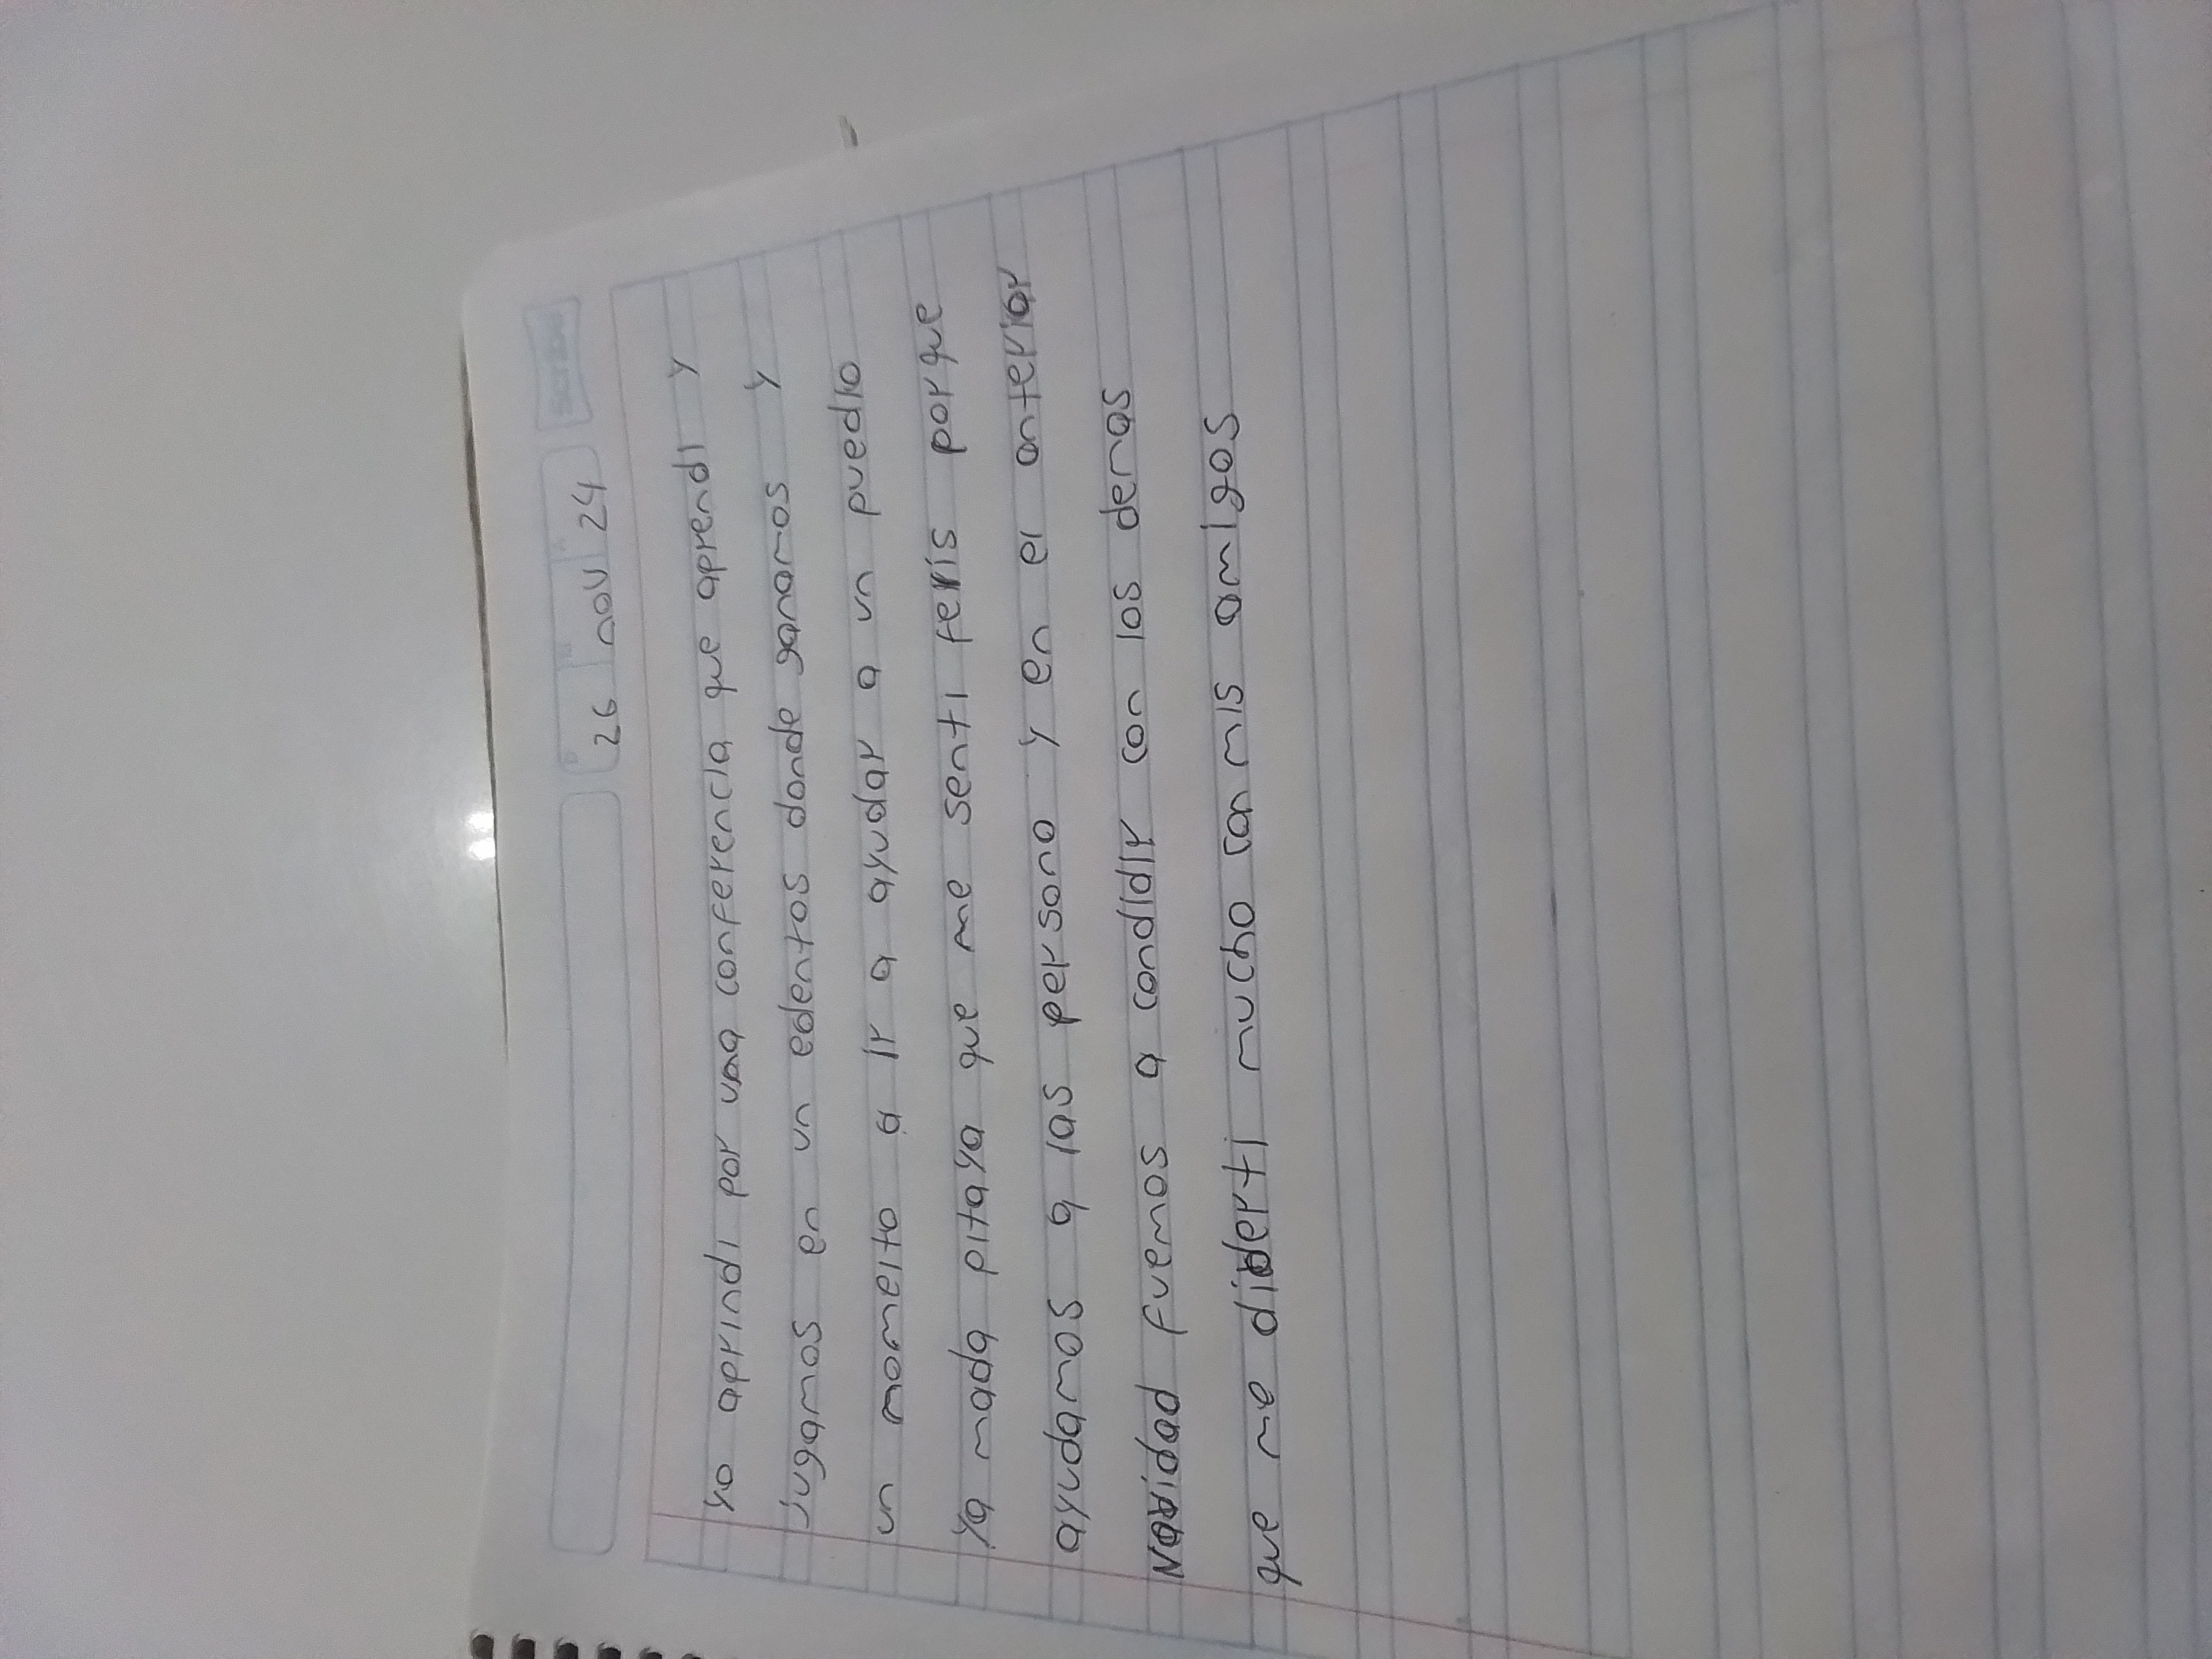 26 nov 24
Scribe
yo aprindi por una conferencia que aprendi y
jugamos en un edentos donde ganamos y
un momeito a ir a ayudar a un puedlo
ya mada pitaya que me senti felis porque
ayudamos a las persona y en el anterior
Navidad fuemos a condidir con los demas
que me diderti mucho con mis amigos